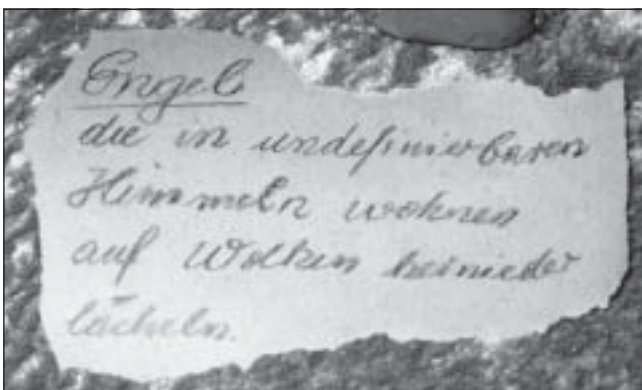 Engel
die in undefinierbaren
Himmeln wohnen
auf Wolken hernieder
lächeln.